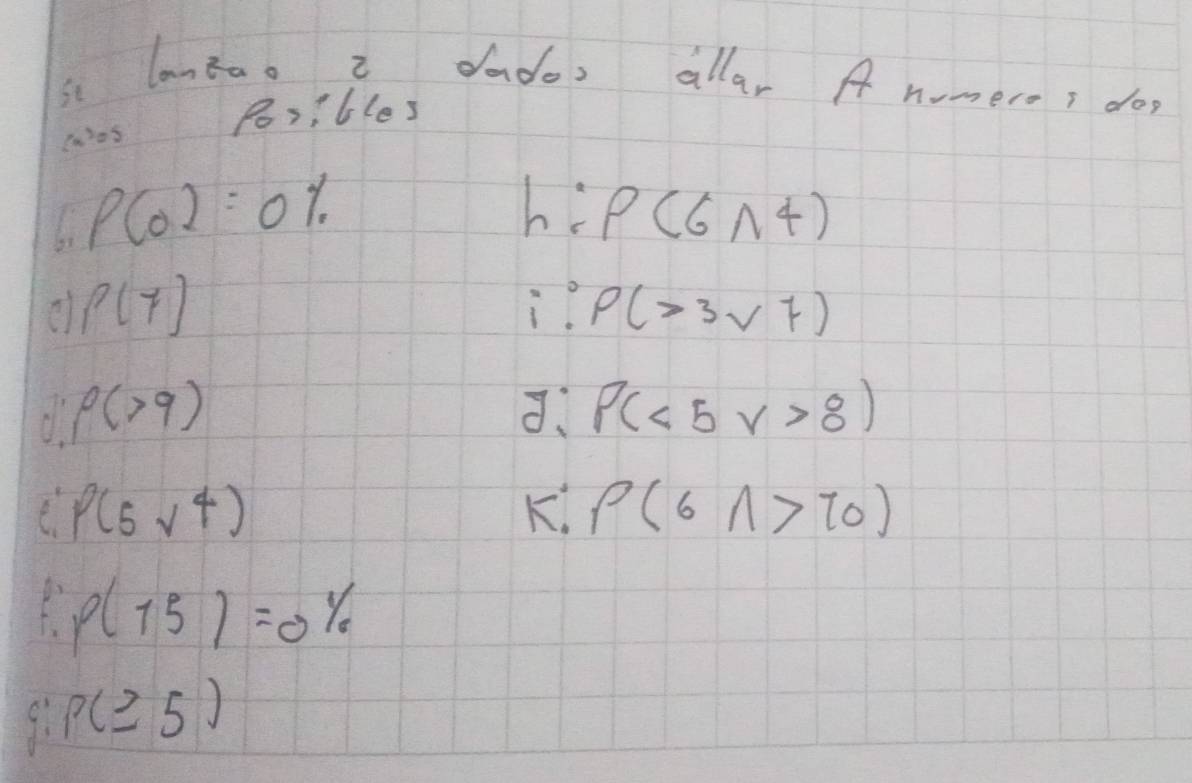 se lanzan 2 dados állar A numeros dos
casos Posibles
b: P(0) = 0%
c) P(7)
d: P(>9)
e: P(5 ∨ 4)
f: P(15) = 0%
g: P(≥ 5)
h: P(6 ∧ 4)
i: P(>3 ∨ 7)
J: P(< 5 ∨ > 8)
K: P(6 ∧ > 10)